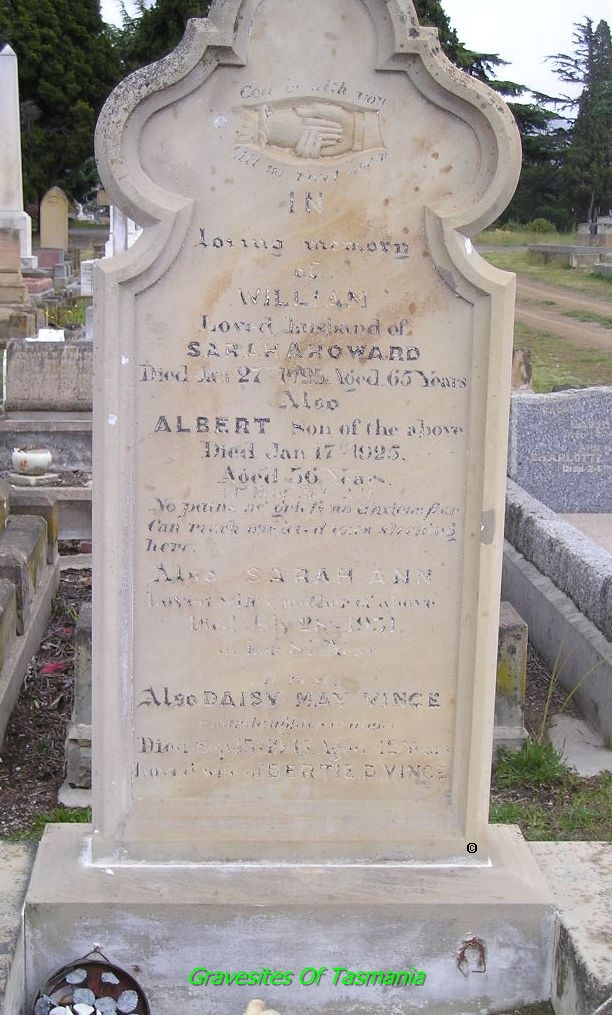 God be with you
Till we meet again
IN
loving memory
of
WILLIAM
Loved husband of
SARAH A HOWARD
Died Jan 27th 1925 Aged 65 Years
Also
ALBERT Son of the above
Died Jan 17th 1925.
Aged 36 Years.
No pains no griefs no anxious fear
Can reach our loved ones sleeping
here.
Also SARAH ANN
Loved wife & mother of above
Died July 28th 1951.
in her Year
Also DAISY MAY VINCE
Died Sep Aged Years
Loved wife of BERTIE D. VINCE
©
Gravesites Of Tasmania
CHARLOTTE